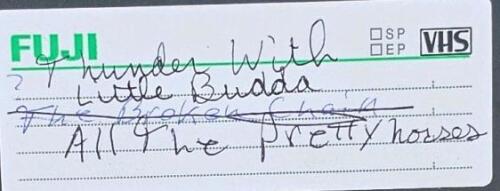 FUJI
SP
EP
VHS
? Thunder With
Little Budda
The Broken Chain
All The Prettyhorses